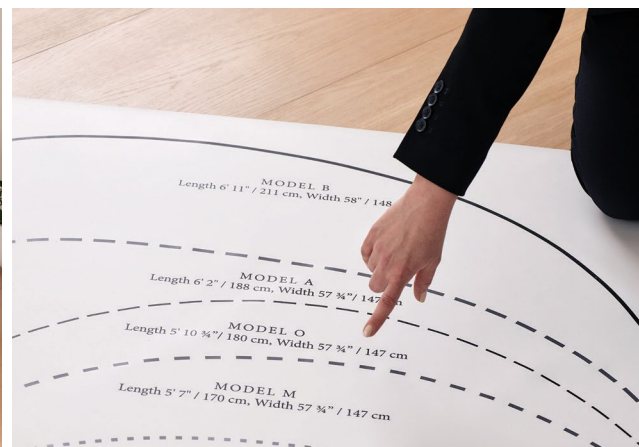 MODEL B
Length 6' 11" / 211 cm, Width 58" / 148
MODEL A
Length 6' 2" / 188 cm, Width 57 ¾" / 147 cm
MODEL O
Length 5' 10 ¾" / 180 cm, Width 57 ¾" / 147 cm
MODEL M
Length 5' 7" / 170 cm, Width 57 ¾" / 147 cm